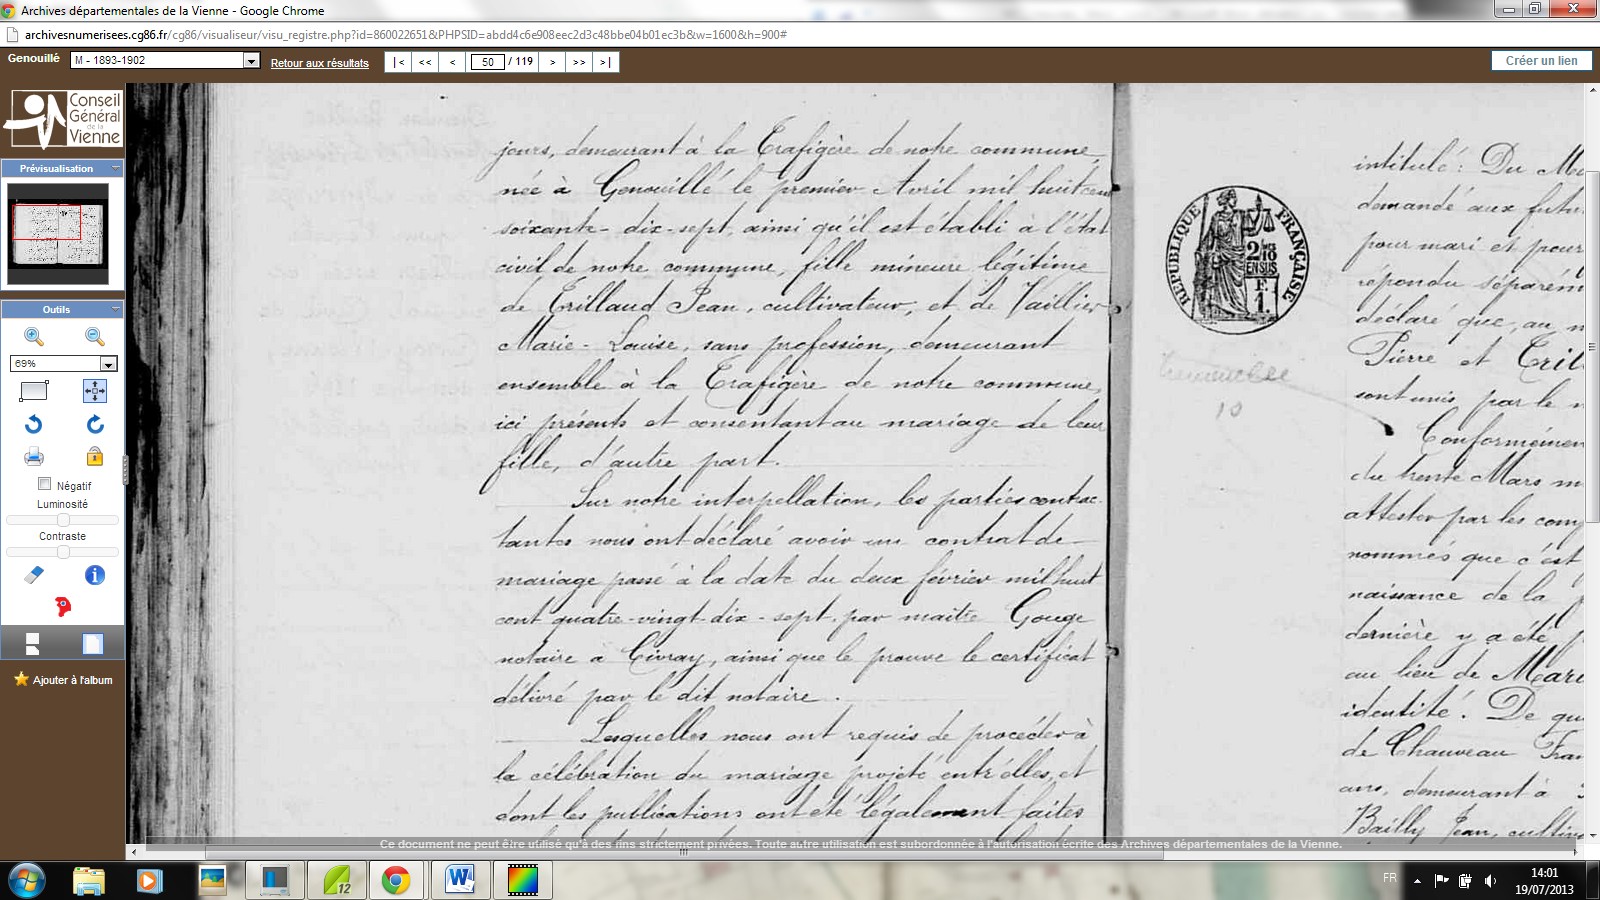 Archives départementales de la Vienne - Google Chrome
archivesnumerisees.cg86.fr/cg86/visualiseur/visu_registre.php?id=860022651&PHPSID=abdd4c6e908eec2d3c48bbe04b01ec3b&w=1600&h=900#
Genouillé
M - 1893-1902
Retour aux résultats
|< << < 50 / 119 > >> >|
Créer un lien
Conseil
Général
de la
Vienne
Prévisualisation
Outils
69%
Négatif
Luminosité
Contraste
Ajouter à l'album
jours, demeurant à la Trafigère de notre commune,
née à Genouillé le premier Avril mil huit cent
soixante-dix-sept, ainsi qu'il est établi à l'état
civil de notre commune, fille mineure légitime
de Trillaud Jean, cultivateur, et de Vaillier
Marie-Louise, sans profession, demeurant
ensemble à la Trafigère de notre commune,
ici présents et consentant au mariage de leur
fille, d'autre part.
Sur notre interpellation, les parties contrac-
tantes nous ont déclaré avoir un contrat de
mariage passé à la date du deux février mil huit
cent quatre-vingt-dix-sept, par maître Gouge
notaire à Civray, ainsi que le prouve le certificat
délivré par le dit notaire.
Lesquelles nous ont requis de procéder à
la célébration du mariage projeté entr'elles, et
dont les publications ont été légalement faites
RÉPUBLIQUE FRANÇAISE
2/10
EN SUS
F.
1.
10
intitulé : Du Ma
demandé aux futu
pour mari et pour
répondu séparém
déclaré que, au n
Pierre et Tril
sont unis par le m
Conformémen
du trente Mars m
attester par les comp
nommés que c'est
naissance de la
dernière y a été
au lieu de Mari
identité. De qu
de Chauveau Fran
ans, demeurant à
Bailly Jean, cultiv
Ce document ne peut être utilisé qu'à des fins strictement privées. Toute autre utilisation est subordonnée à l'autorisation écrite des Archives départementales de la Vienne.
12
FR
14:01
19/07/2013